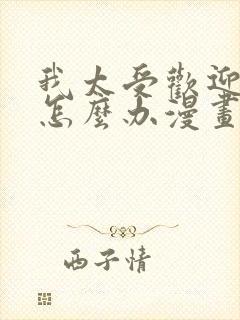 我太受歡迎
怎麼办漫畫
西子情